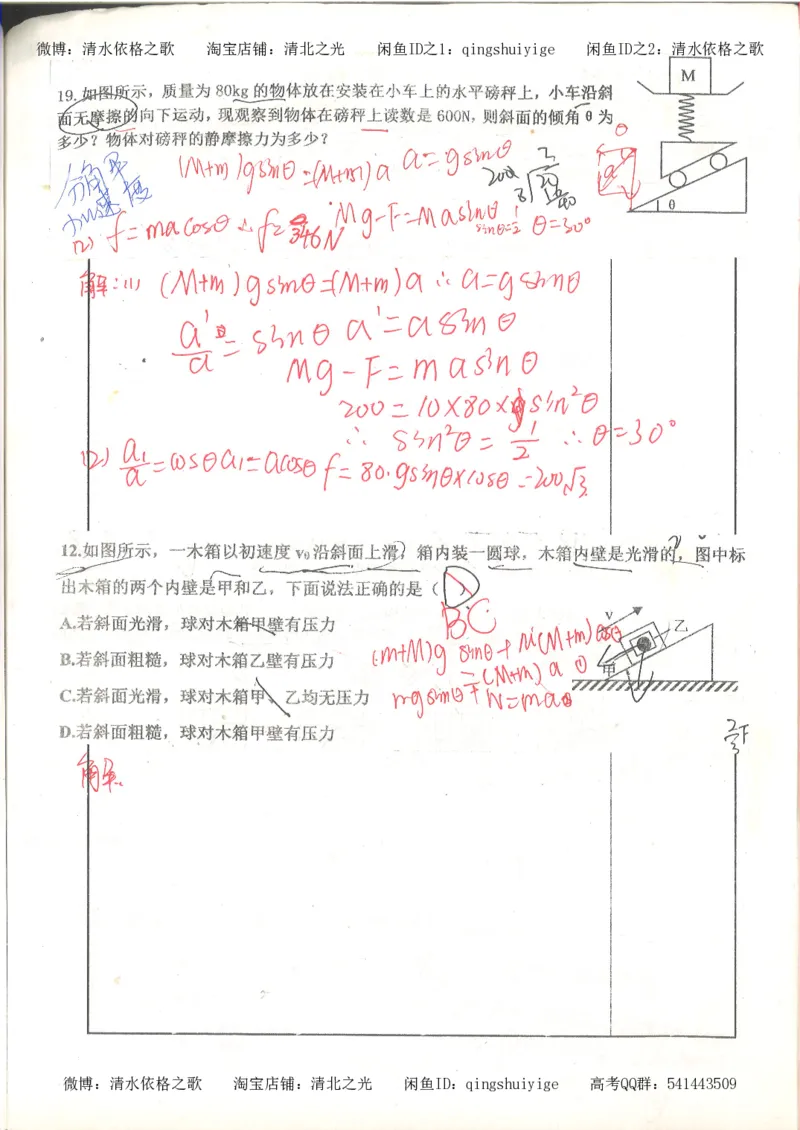 微博：清水依格之歌 淘宝店铺：清北之光 闲鱼ID之1：qingshuiyige 闲鱼ID之2：清水依格之歌
19.如图所示，质量为 80kg 的物体放在安装在小车上的水平磅秤上，小车沿斜
面无摩擦的向下运动，现观察到物体在磅秤上读数是 600N，则斜面的倾角 θ 为
多少？物体对磅秤的静摩擦力为多少？
M
θ
分解
加速度
(M+m)gsinθ=(M+m)a a=gsinθ
Mg-F=Masinθ sinθ=1/2 θ=30°
(2) f=macosθ ∴f=346N
θ
a
解：(1) (M+m)gsinθ=(M+m)a ∴a=gsinθ
a'/a=sinθ a'=asinθ
Mg-F=masinθ
200=10×80×sin²θ
∴ sin²θ=1/2 ∴θ=30°
(2) a₁/a=cosθ a₁=acosθ f=80·gsinθ×cosθ=200√3
12.如图所示，一木箱以初速度 v₀ 沿斜面上滑，箱内装一圆球，木箱内壁是光滑的，图中标
出木箱的两个内壁是甲和乙，下面说法正确的是（ ）
BC
A.若斜面光滑，球对木箱甲壁有压力
B.若斜面粗糙，球对木箱乙壁有压力
C.若斜面光滑，球对木箱甲、乙均无压力
D.若斜面粗糙，球对木箱甲壁有压力
(m+M)gsinθ+μ(M+m)cosθ
=(M+m)a ①
mgsinθ+N=ma②
v
乙
甲
解：
微博：清水依格之歌 淘宝店铺：清北之光 闲鱼ID：qingshuiyige 高考QQ群：541443509